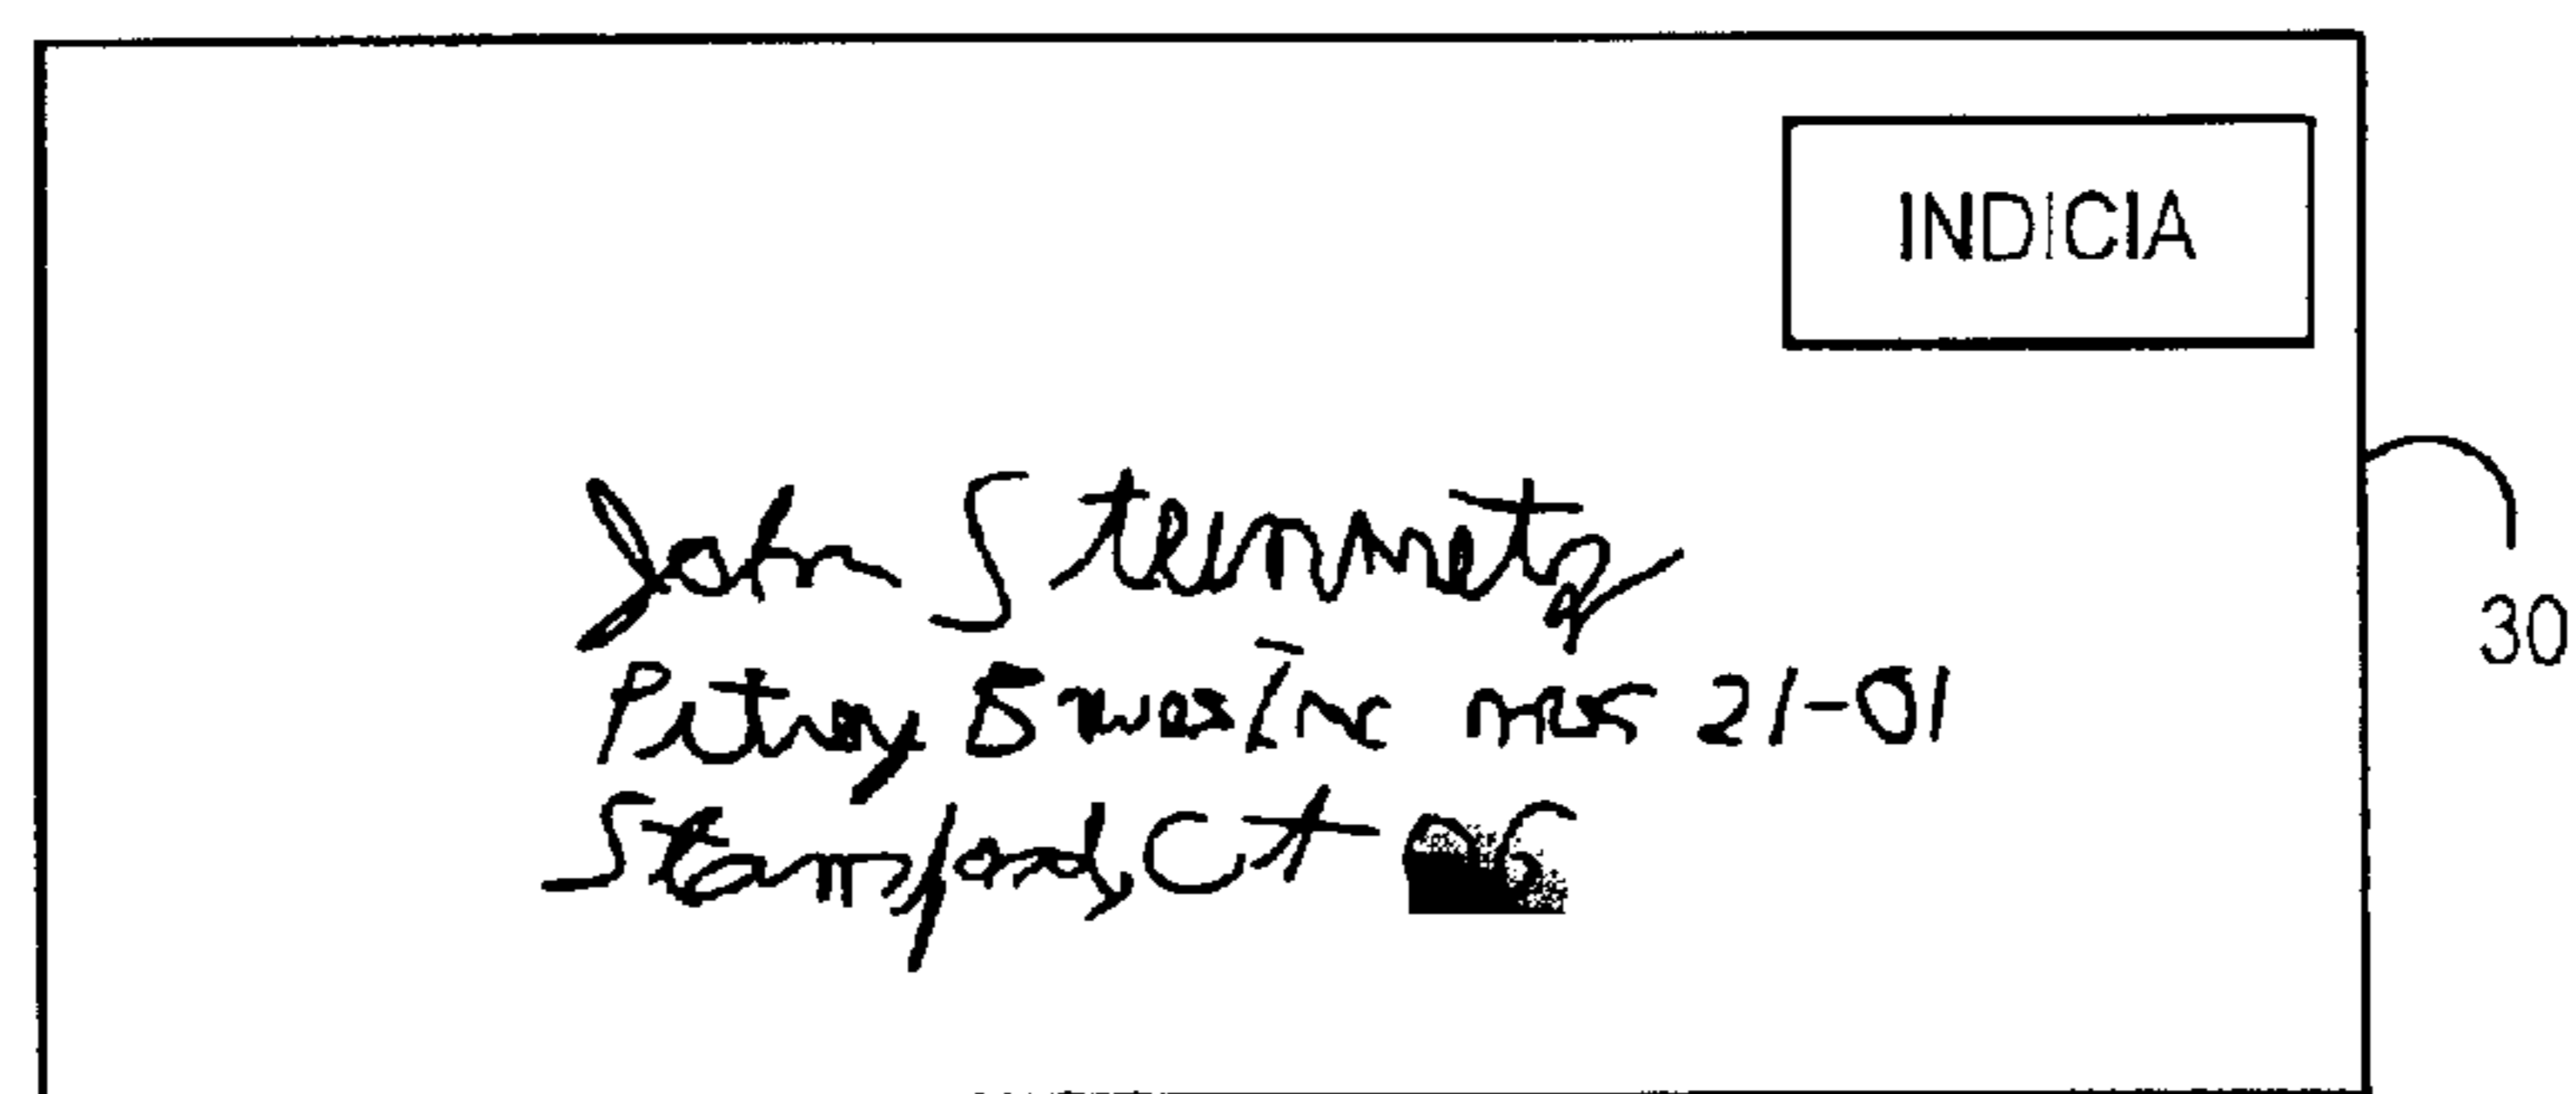 INDICIA
John Steinmetz
Pitney Bowes Inc MS 21-01
Stamford, Ct 06
30